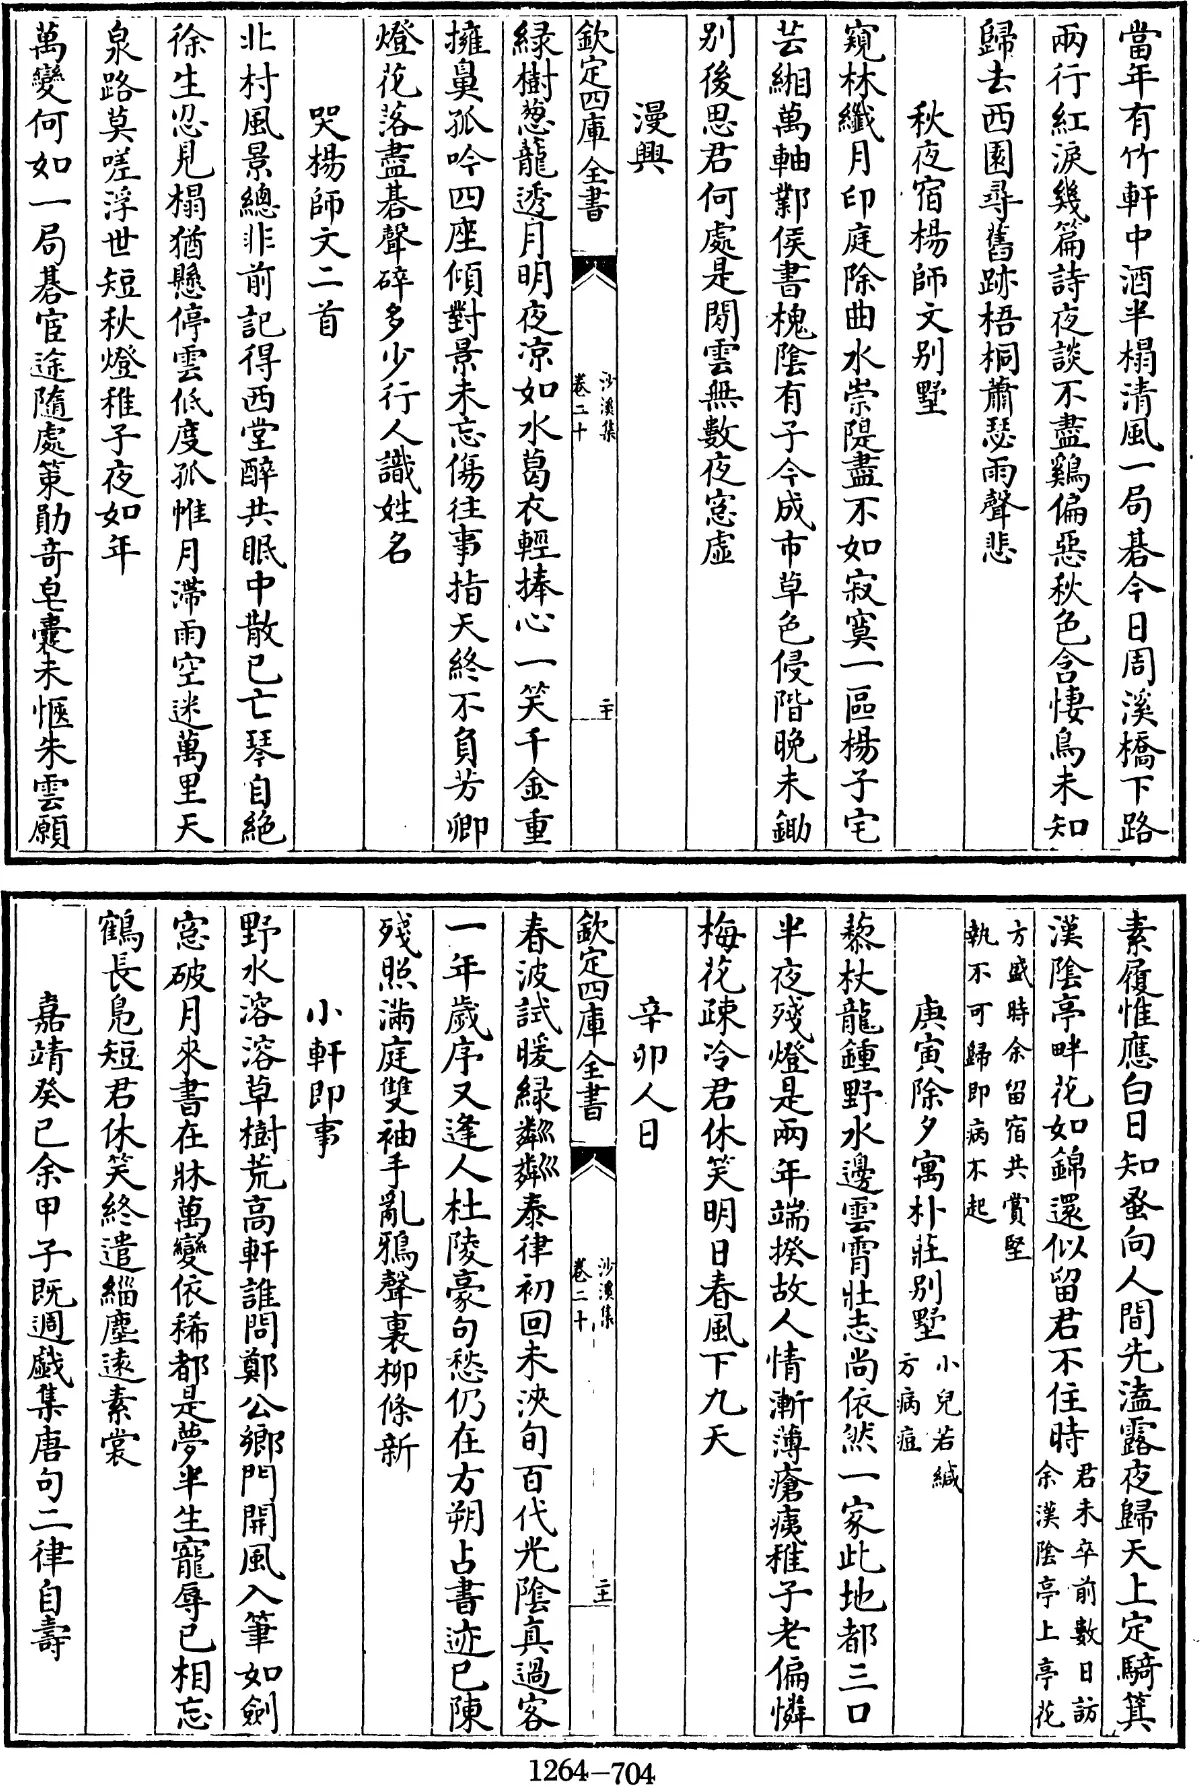 當年有竹軒中酒半榻清風一局碁今日周溪橋下路
兩行紅淚幾篇詩夜談不盡鷄偏惡秋色含悽鳥未知
歸去西園尋舊跡梧桐蕭瑟雨聲悲
秋夜宿楊師文别墅
窺林纖月印庭除曲水崇隄盡不如寂寞一區楊子宅
芸緗萬軸鄴侯書槐陰有子今成市草色侵階晚未鋤
别後思君何處是閒雲無數夜窓虚
漫興
欽定四庫全書
沙溪集
卷二十
二十
緑樹葱蘢透月明夜凉如水葛衣輕捧心一笑千金重
擁鼻孤吟四座傾對景未忘傷往事指天終不負芳卿
燈花落盡碁聲碎多少行人識姓名
哭楊師文二首
北村風景總非前記得西堂醉共眠中散已亡琴自絶
徐生忍見榻猶懸停雲低度孤帷月滯雨空迷萬里天
泉路莫嗟浮世短秋燈稚子夜如年
萬變何如一局碁宦途隨處策勛竒皂囊未愜朱雲願
素履惟應白日知蚤向人間先溘露夜歸天上定騎箕
漢陰亭畔花如錦還似留君不住時
君未卒前數日訪
余漢陰亭上亭花
方盛時余留宿共賞堅
執不可歸即病不起
庚寅除夕寓朴莊别墅
小兒若緘
方病痘
藜杖龍鍾野水邊雲霄壯志尚依然一家此地都三口
半夜殘燈是兩年端揆故人情漸薄瘡痍稚子老偏憐
梅花疎冷君休笑明日春風下九天
辛卯人日
欽定四庫全書
沙溪集
卷二十
二十一
春波試暖緑粼粼泰律初回未浹旬百代光陰真過客
一年歲序又逢人杜陵豪句愁仍在方朔占書迹已陳
殘照滿庭雙袖手亂鴉聲裏柳條新
小軒即事
野水溶溶草樹荒高軒誰問鄭公鄉門開風入筆如劍
窓破月來書在牀萬變依稀都是夢半生寵辱已相忘
鶴長鳬短君休笑終遣緇塵遠素裳
嘉靖癸巳余甲子既週戯集唐句二律自壽
1264-704